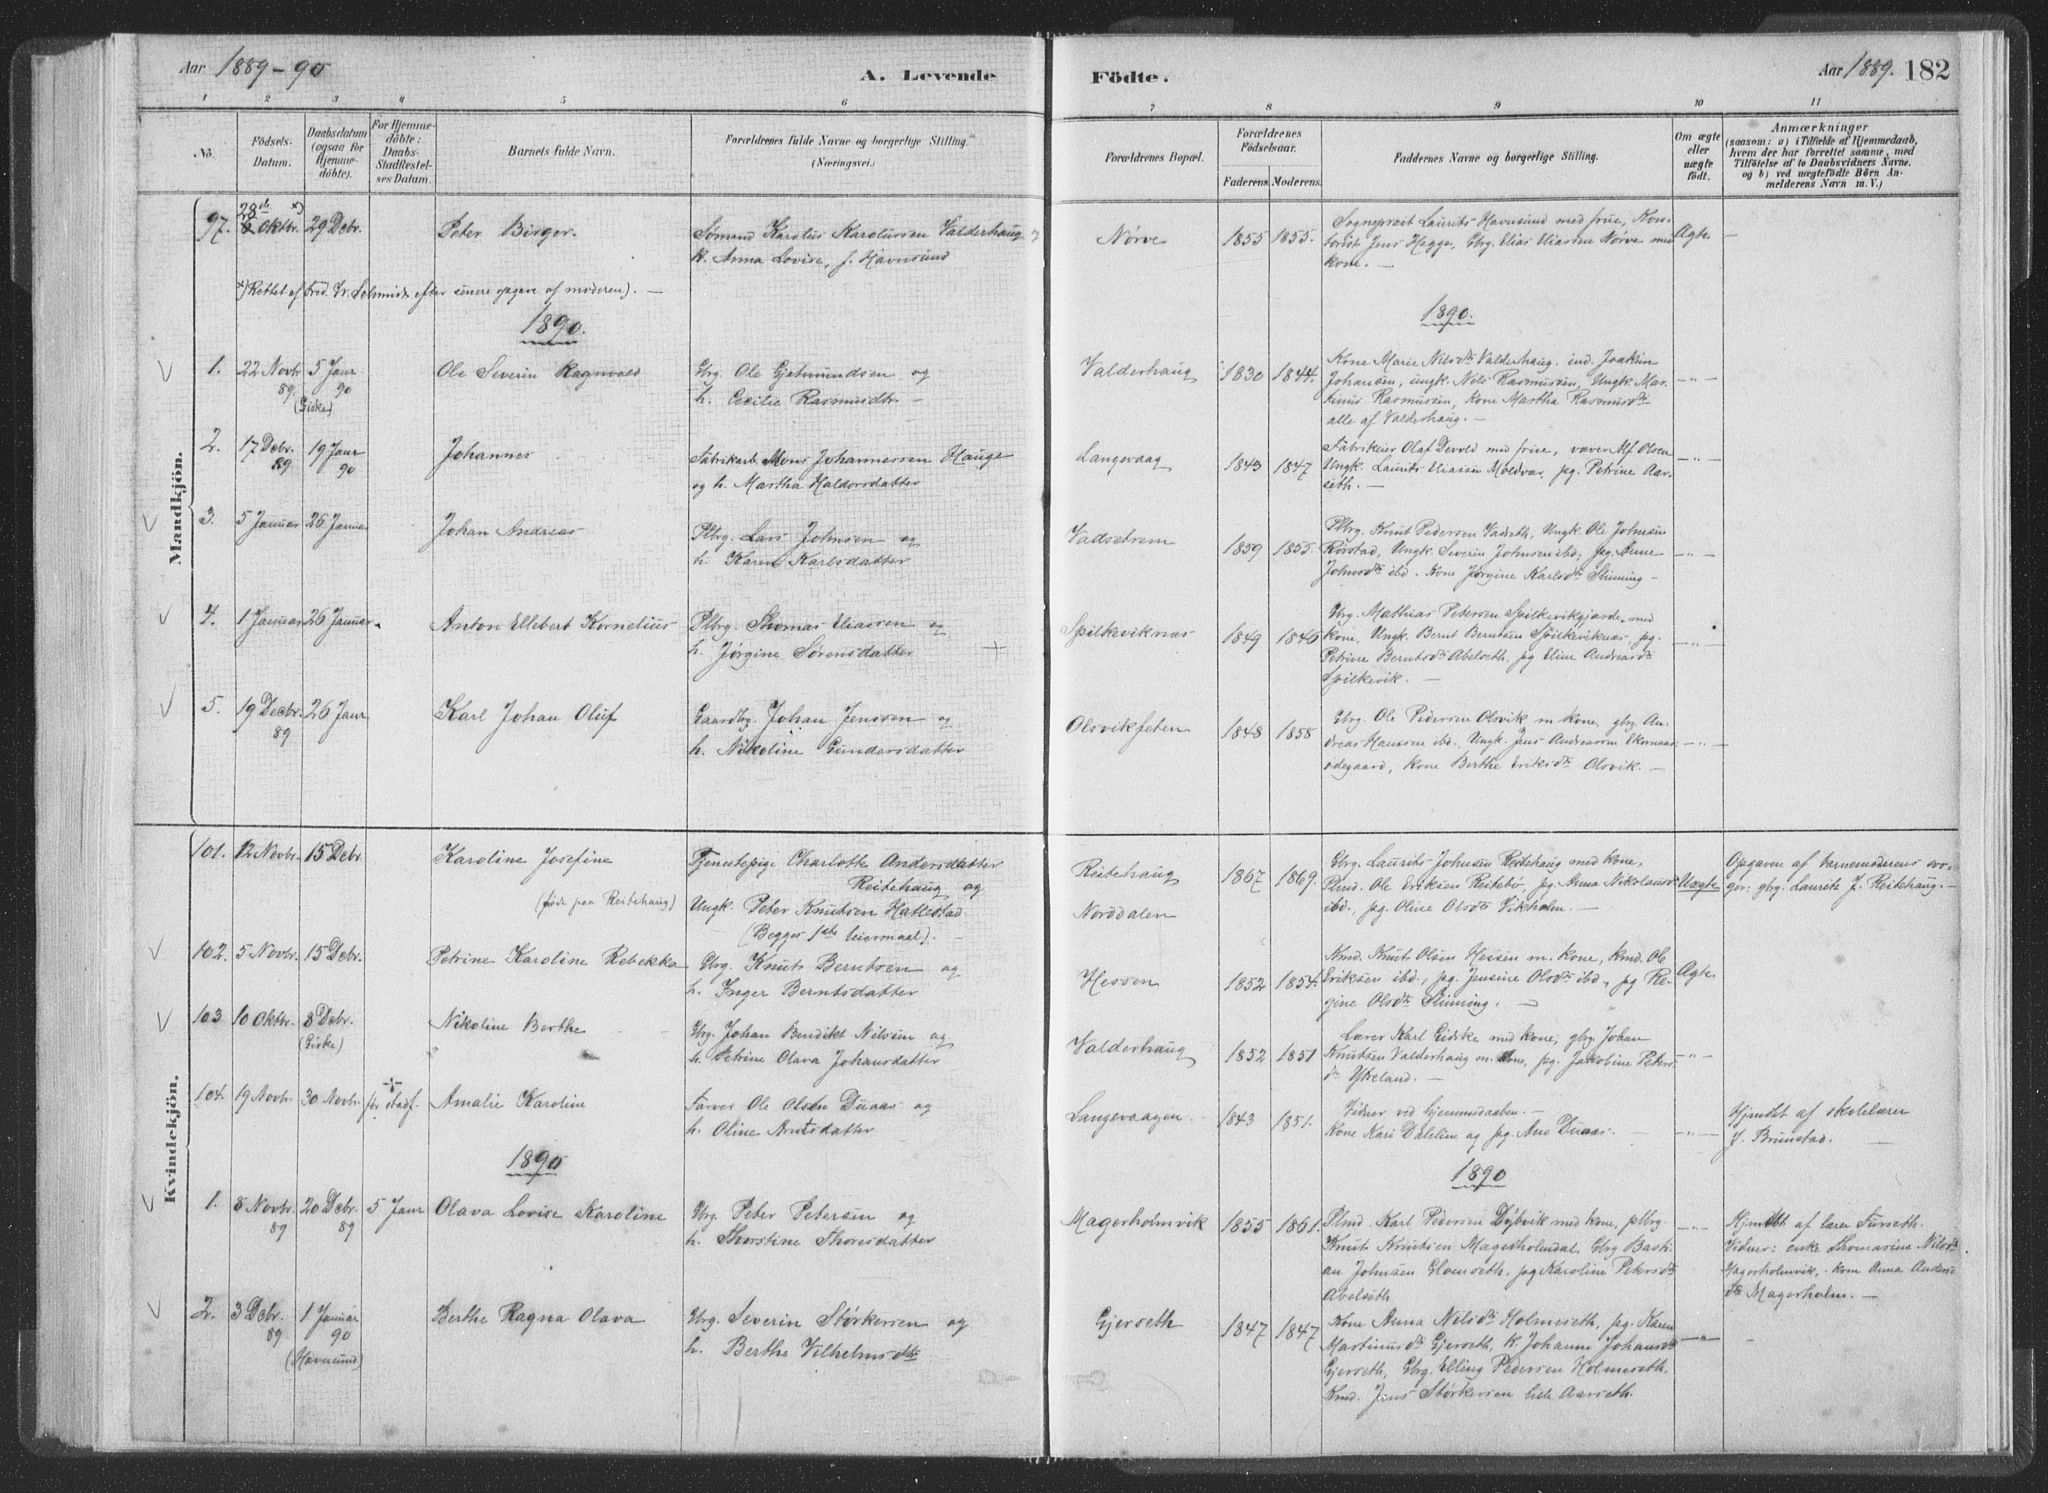 Aar 1889-90
A. Levende
Födte.
Aar 1889. 182
1 2 3 4 5 6 7 8 9 10 11
No.
Födsels-
Datum.
Daabsdatum
(ogsaa for
Hjemme-
döbte).
For Hjemme-
döbte:
Daabs-
Stadfæstel-
ses Datum.
Barnets fulde Navn.
Forældrenes fulde Navne og borgerlige Stilling.
(Næringsvei.)
Forældrenes Bopæl.
Forældrenes
Födselsaar.
Faderens. Moderens.
Faddernes Navne og borgerlige Stilling.
Om ægte
eller
uægte
födt.
Anmærkninger
(saasom: a) i Tilfælde af Hjemmedaab,
hvem der har forrettet samme, med
Tilföielse af to Daabsvidners Navne.
og b) ved uægtefödte Börn An-
melderens Navn m. V.)
Mandkjön.
28de *)
97. 6 Oktbr. 29 Debr. Peter Birger. Sømand Karolus Karolussen Valderhaug og
k. Anna Lovise, f. Havnsund
Nørve 1855 1855.
Sogneprest Laurits Havnsund med frue, Kon-
torist Jens Hagge, Gbg. Elias Eliassen Nørve med
kone. —
Ægte —
*) Rettet af Fred. Kr. Schmidt efter senere opgave af moderen). —
1890. 1890.
1. 22 Novbr 89. 5 Jaur 90 (Giske) Ole Severin Ragnvald Gbrg. Ole Gjetmundsen og
h. Cecilie Rasmusdtr —
Valderhaug 1830 1844.
Kone Marie Nilsdtr Valderhaug. ind. Joakim
Johansen, ungk. Nils Rasmussen, Ungk. Mar-
tinus Rasmussen, Kone Martha Rasmusdtr
alle af Valderhaug. —
—„—
2. 17 Debr. 89 19 Jaur 90 Johannes. Fabrikarb. Mons Johannessen Hauge
og h. Martha Haldorsdatter
Langevaag 1843 1847
Fabrikeier Olaf Devold med frue, væver Alf Olsen
Ungk. Laurits Eliassen Moldvær, pg. Petrine Aar-
seth. —
—„—
3. 5 Januar 26 Januar Johan Andreas Plbrg. Lars Johnsen og
h. Karen Karlsdatter
Vadsetrem 1859 1855.
Plbrg. Knut Pedersen Vadseth, Ungk. Ole Johnsen
Rørstad, Ungk. Severin Johnsen ibd; pg. Anne
Johnsdtr ibd. Kone Jørgine Karlsdtr Slinning —
—„—
4. 1 Januar 26 Januar. Anton Ellebert Kornelius Plbrg. Thomas Eliassen og
h. Jørgine Sørensdatter +
Spilkeviknes 1849 1846
Gbrg. Mathias Petersen Spilkevikgjerde med
kone, Ungk. Bernt Berntsen Spilkeviknæs, pg.
Petrine Berntsdtr Abelseth, pg Eline Andreasdtr
Spilkevik. —
—„—
5. 19 Decbr. 89 26 Jaur Karl Johan Oluf Gaardbrg. Johan Jenssen og
h. Nikoline Gundersdatter
Olsvikfeten 1848 1858
Gbrg. Ole Pedersen Olsvik m. kone, gbrg. An-
dreas Hanssen ibd., Ungk. Jens Andreassen Ekornæs
ødegaard, kone Berthe Eriksdtr Olsvik. —
—„—
Kvindekjön.
101. 12 Novbr. 15 Debr. Karoline Josefine
(født paa Reitehaug)
Tjenestepige Charlotte Andersdatter
Reitehaug og
Ungk. Peter Knutsen Hattestad
(Begges 1ste leiermaal). —
Reitehaug
Norddalen
1867 1869.
Gbrg. Laurits Johnsen Reitehaug med kone,
Plmd. Ole Eriksen Reitebø, pg. Anna Nikolausdtr
ibd., pg. Oline Olsdtr Vikholm. —
Uægte
Opgaven af barnemoderens svo-
ger: gbrg. Laurits J. Reitehaug. —
102. 5 Novbr. 15 Debr. Petrine Karoline Rebekka Gbrg. Knut Berntsen og
h. Inger Berntsdatter
Hessen 1852 1854.
Kmd. Knut Olsen Hessen m. kone, kmd. Ole
Eriksen ibd., pg. Jensine Olsdtr ibd., pg Re-
gine Olsdtr Slinning. —
Ægte
103 10 Oktbr. 8 Debr. (Giske) Nikoline Berthe Gbrg. Johan Bendikt Nilsen og
h. Petrine Olava Johansdatter
Valderhaug 1852 1851
Lærer Karl Gidske med kone, gbrg. Johan
Knutsen Valderhaug m. kone, pg. Jakobine Peters-
dtr Ytreland. —
—„—
104. 19 Novbr. 30 Novbr. før stadf. Amalie Karoline Farver Ole Olsen Duaas og
h. Oline Arntsdatter
Langevaagen 1843 1851.
Vidner ved hjemmedaaben. —
Kone Kari Dalelin og pg. Ane Duaas. —
—„—
Hjmdbt af skolelærer
J. Brunstad. —
1890 1890
1. 8 Novbr. 89 20 Debr. 89 5 Jaur Olava Lovise Karoline Gbrg. Peter Petersen og
h. Thorstine Thoresdatter
Magerholmvik 1855 1861.
Plmd. Karl Pedersen Dybvik med kone, plbrg.
Knut Knutsen Magerholmdal, Gbrg Basti-
an Johnsen Elvenseth, pg Karoline Petersdtr
Abelseth
—„—
Hjmdbt af lærer Furseth.
Vidner: enke Thomasine Nilsdtr.
Magerholmvik, kone Anna Anders-
dtr Magerholm. —
2. 3 Debr. 89 1 Januar 90 (Havnsund) Berthe Ragna Olava Gbrg. Severin Størkersen og
h. Berthe Vilhelmsdtr
Gjerseth 1847 1847
Kone Anna Nilsdtr Holmeseth, pg. Karen
Martinusdtr Gjerseth, K. Johanne Johansdtr
Gjerseth, Gbrg. Elling Pedersen Holmeseth.
Kmd. Jens Størkersen lille Aarseth.
—„—